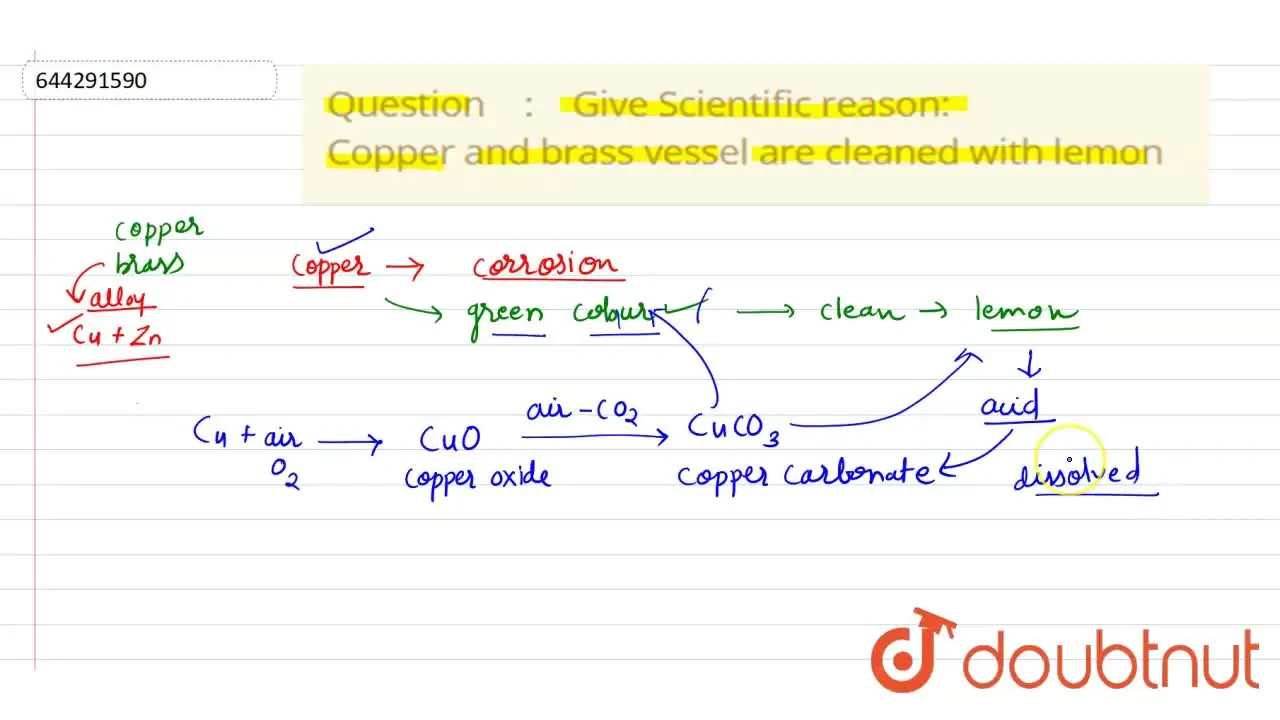 644291590
Question : Give Scientific reason:
Copper and brass vessel are cleaned with lemon
copper
brass
alloy
Cu + Zn
Copper → corrosion
green colour → clean → lemon
acid
Cu + air → CuO air - CO2 → CuCO3
O2 copper oxide copper carbonate dissolved
doubtnut